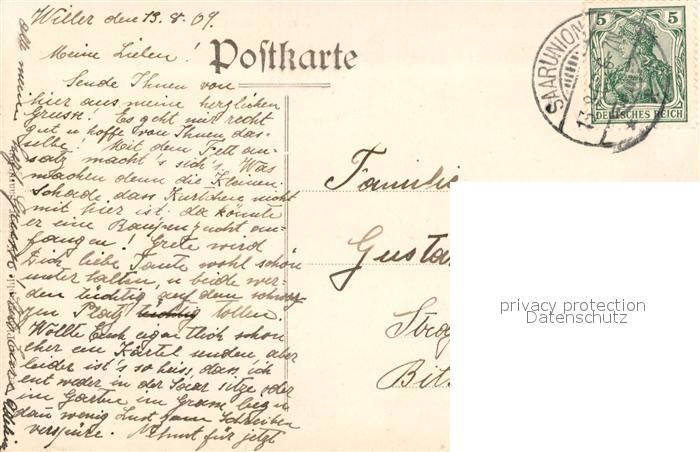 Willer den 13.8.09.
Meine Lieben!
Postkarte
Sende Ihnen von
hier aus meine herzlichen
Grüsse! Es geht mir recht
gut u hoffe von Ihnen das-
selbe! Mit dem Fett an-
satz macht's sich's. Was
machen denn die Kleinen.
Schade dass Kurtchen nicht
mit hier ist. da könnte
er eine Raupenzucht an-
fangen! Grete wird
Dich liebe Tante wohl schön
unterhalten, u beide wer-
den tüchtig auf dem
Platz tollen.
Wollte Euch eigentlich schon
eher ein Kärtel senden, aber
leider ist's so heiss, dass ich
entweder in der Saar sitze oder
im Garten im Grase liege u
dann wenig Lust zum Schreiben
verspüre. Nehmt für jetzt
alle meine
Familie
Gusta
Bit
SAARUNION
5 5
DEUTSCHES REICH
privacy protection
Datenschutz